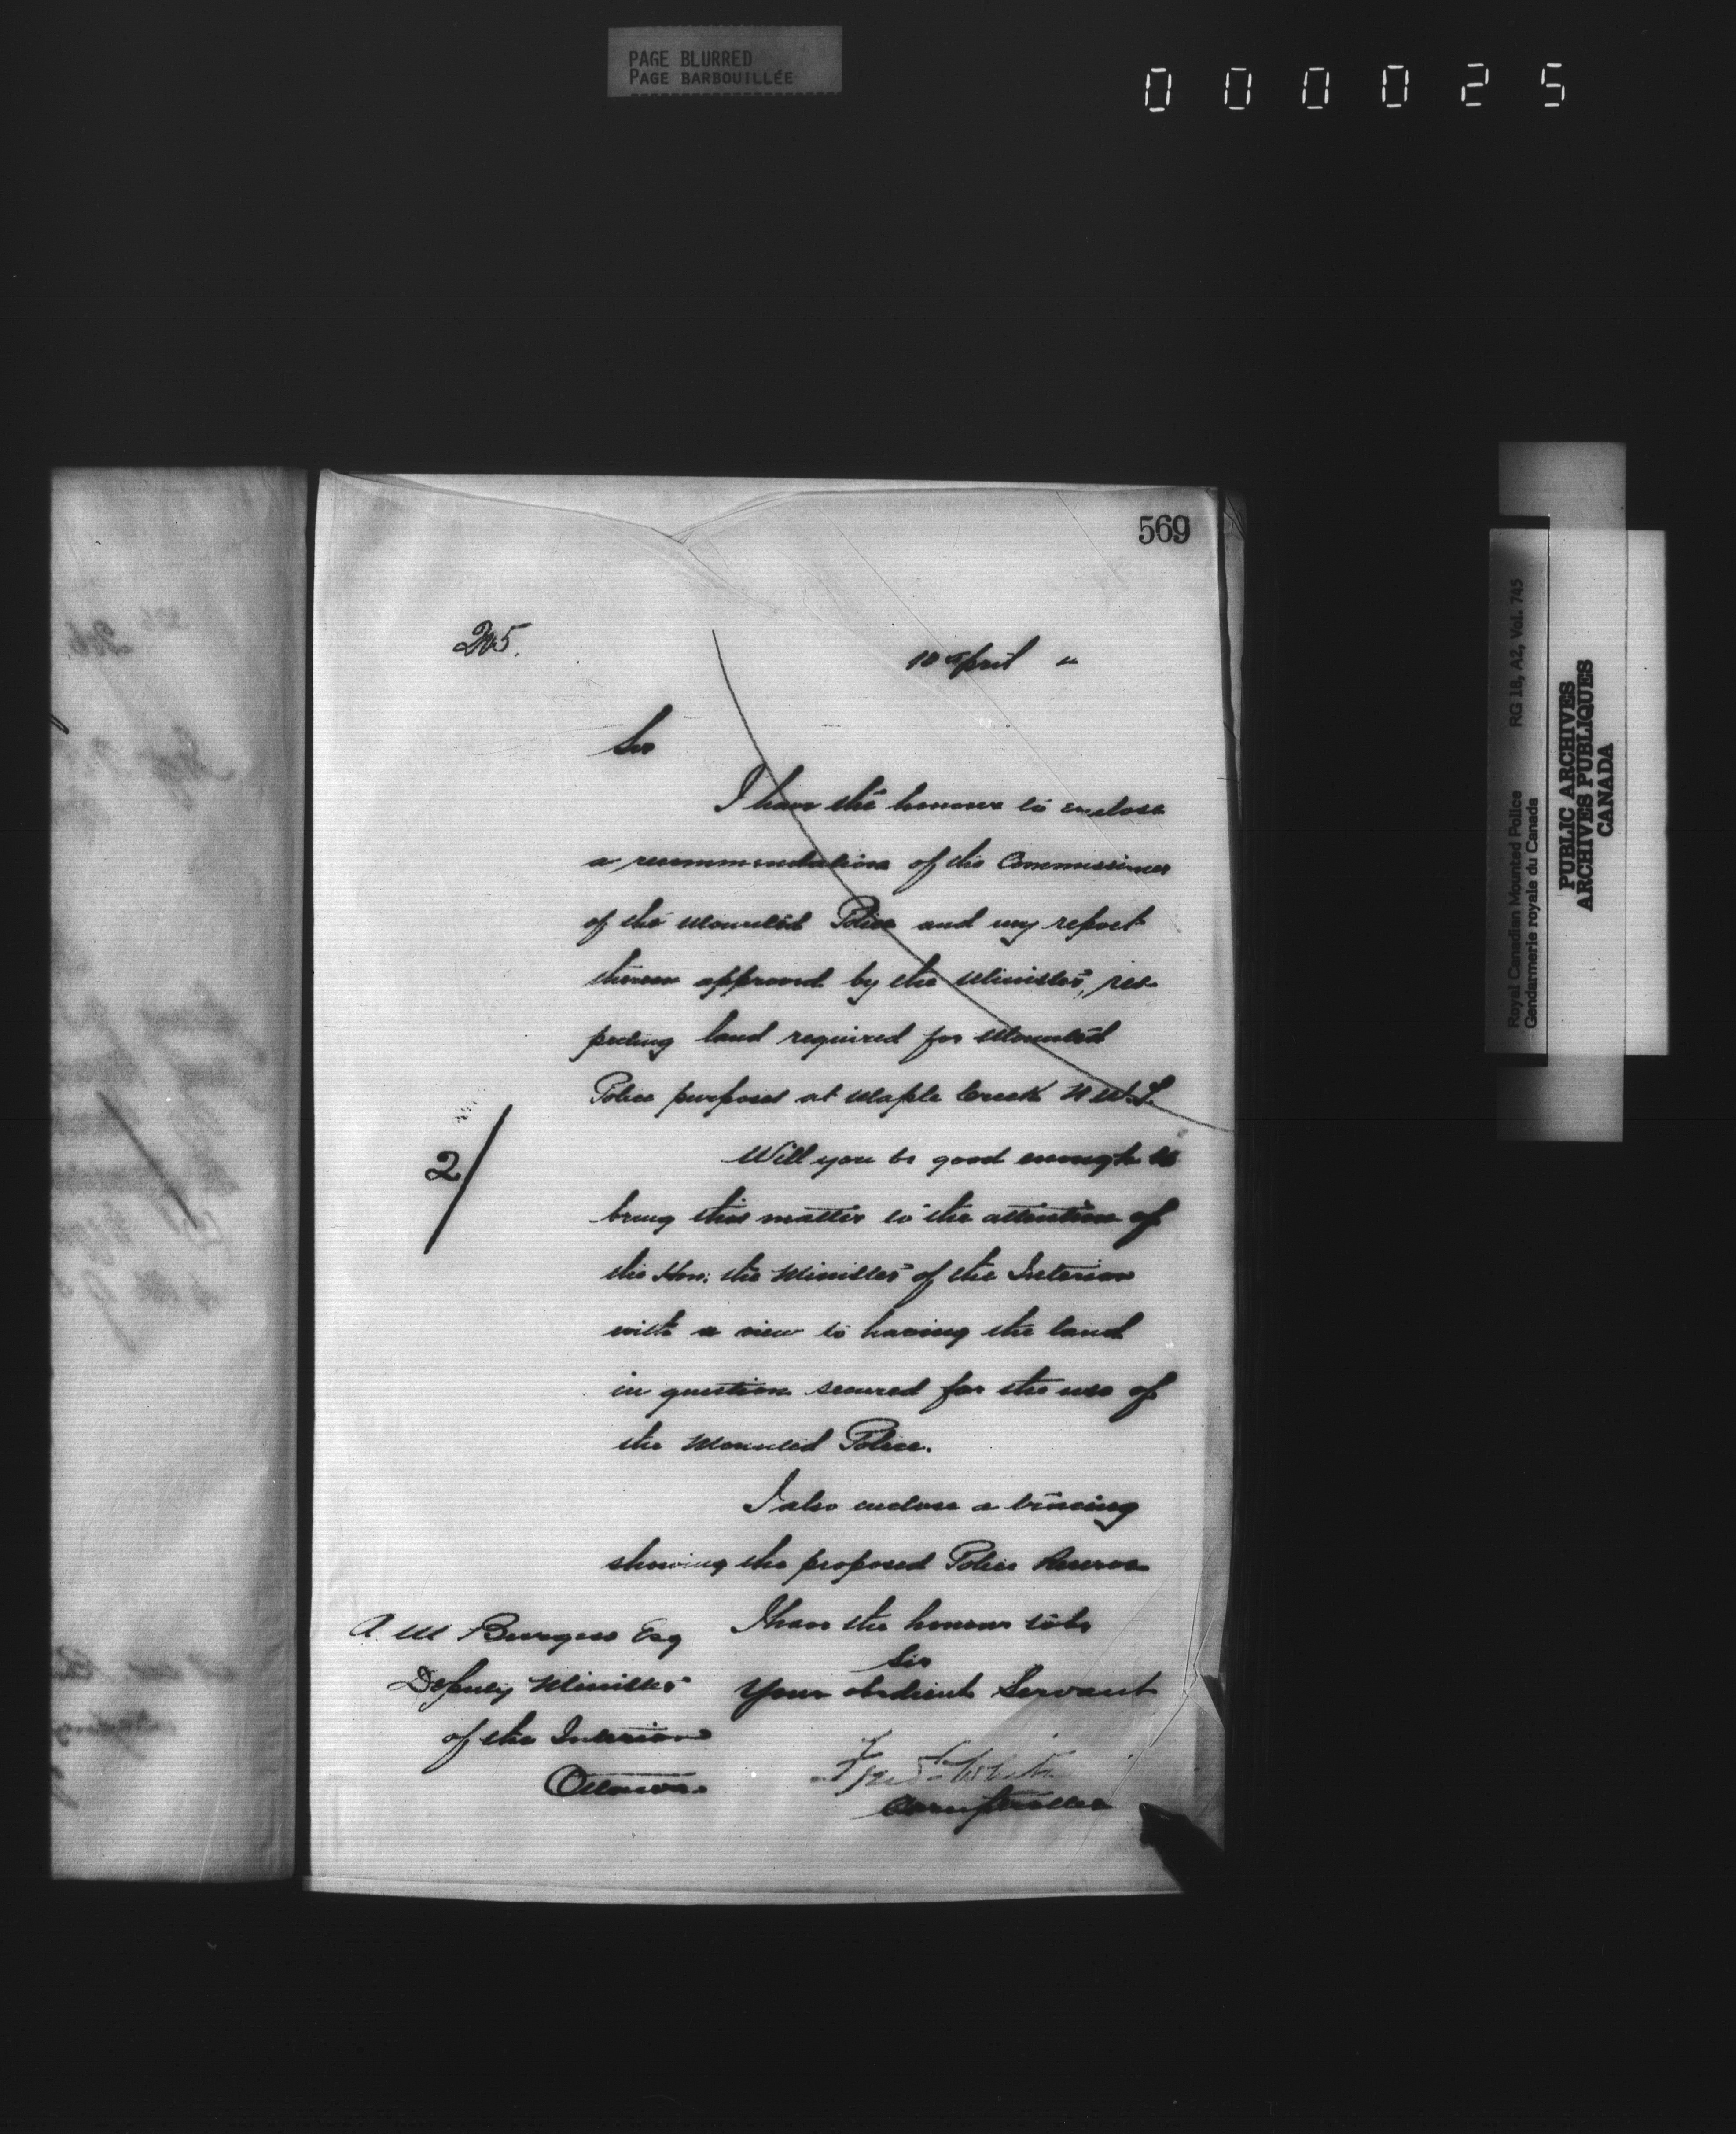 PAGE BLURRED
PAGE BARBOUILLÉE
000025
569
205.
10 April "
Sir
I have the honour to enclose
a recommendation of the Commissioner
of the Mounted Police and my report
thereon approved by the Minister, res-
pecting land required for Mounted
Police purposes at Maple Creek N.W.T.
2/
Will you be good enough to
bring this matter to the attention of
the Hon: the Minister of the Interior
with a view to having the land
in question secured for the use of
the Mounted Police.
I also enclose a tracing
showing the proposed Police Reserve
I have the honour to be
Sir
Your obedient Servant
Fred White
Comptroller
A M Burgess Esq
Deputy Minister
of the Interior
Ottawa.
Royal Canadian Mounted Police RG 18, A2, Vol. 745
Gendarmerie royale du Canada
PUBLIC ARCHIVES
ARCHIVES PUBLIQUES
CANADA